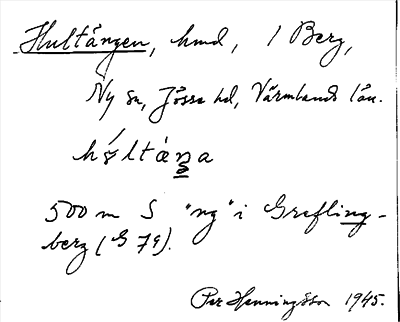 Hultängen, hmd, 1 Berg,
Ny sn, Jösse hd, Värmlands län.
hóltàŋa
500 m S "ng" i Grefling-
berg (G 79).
Per Henningsson 1945.